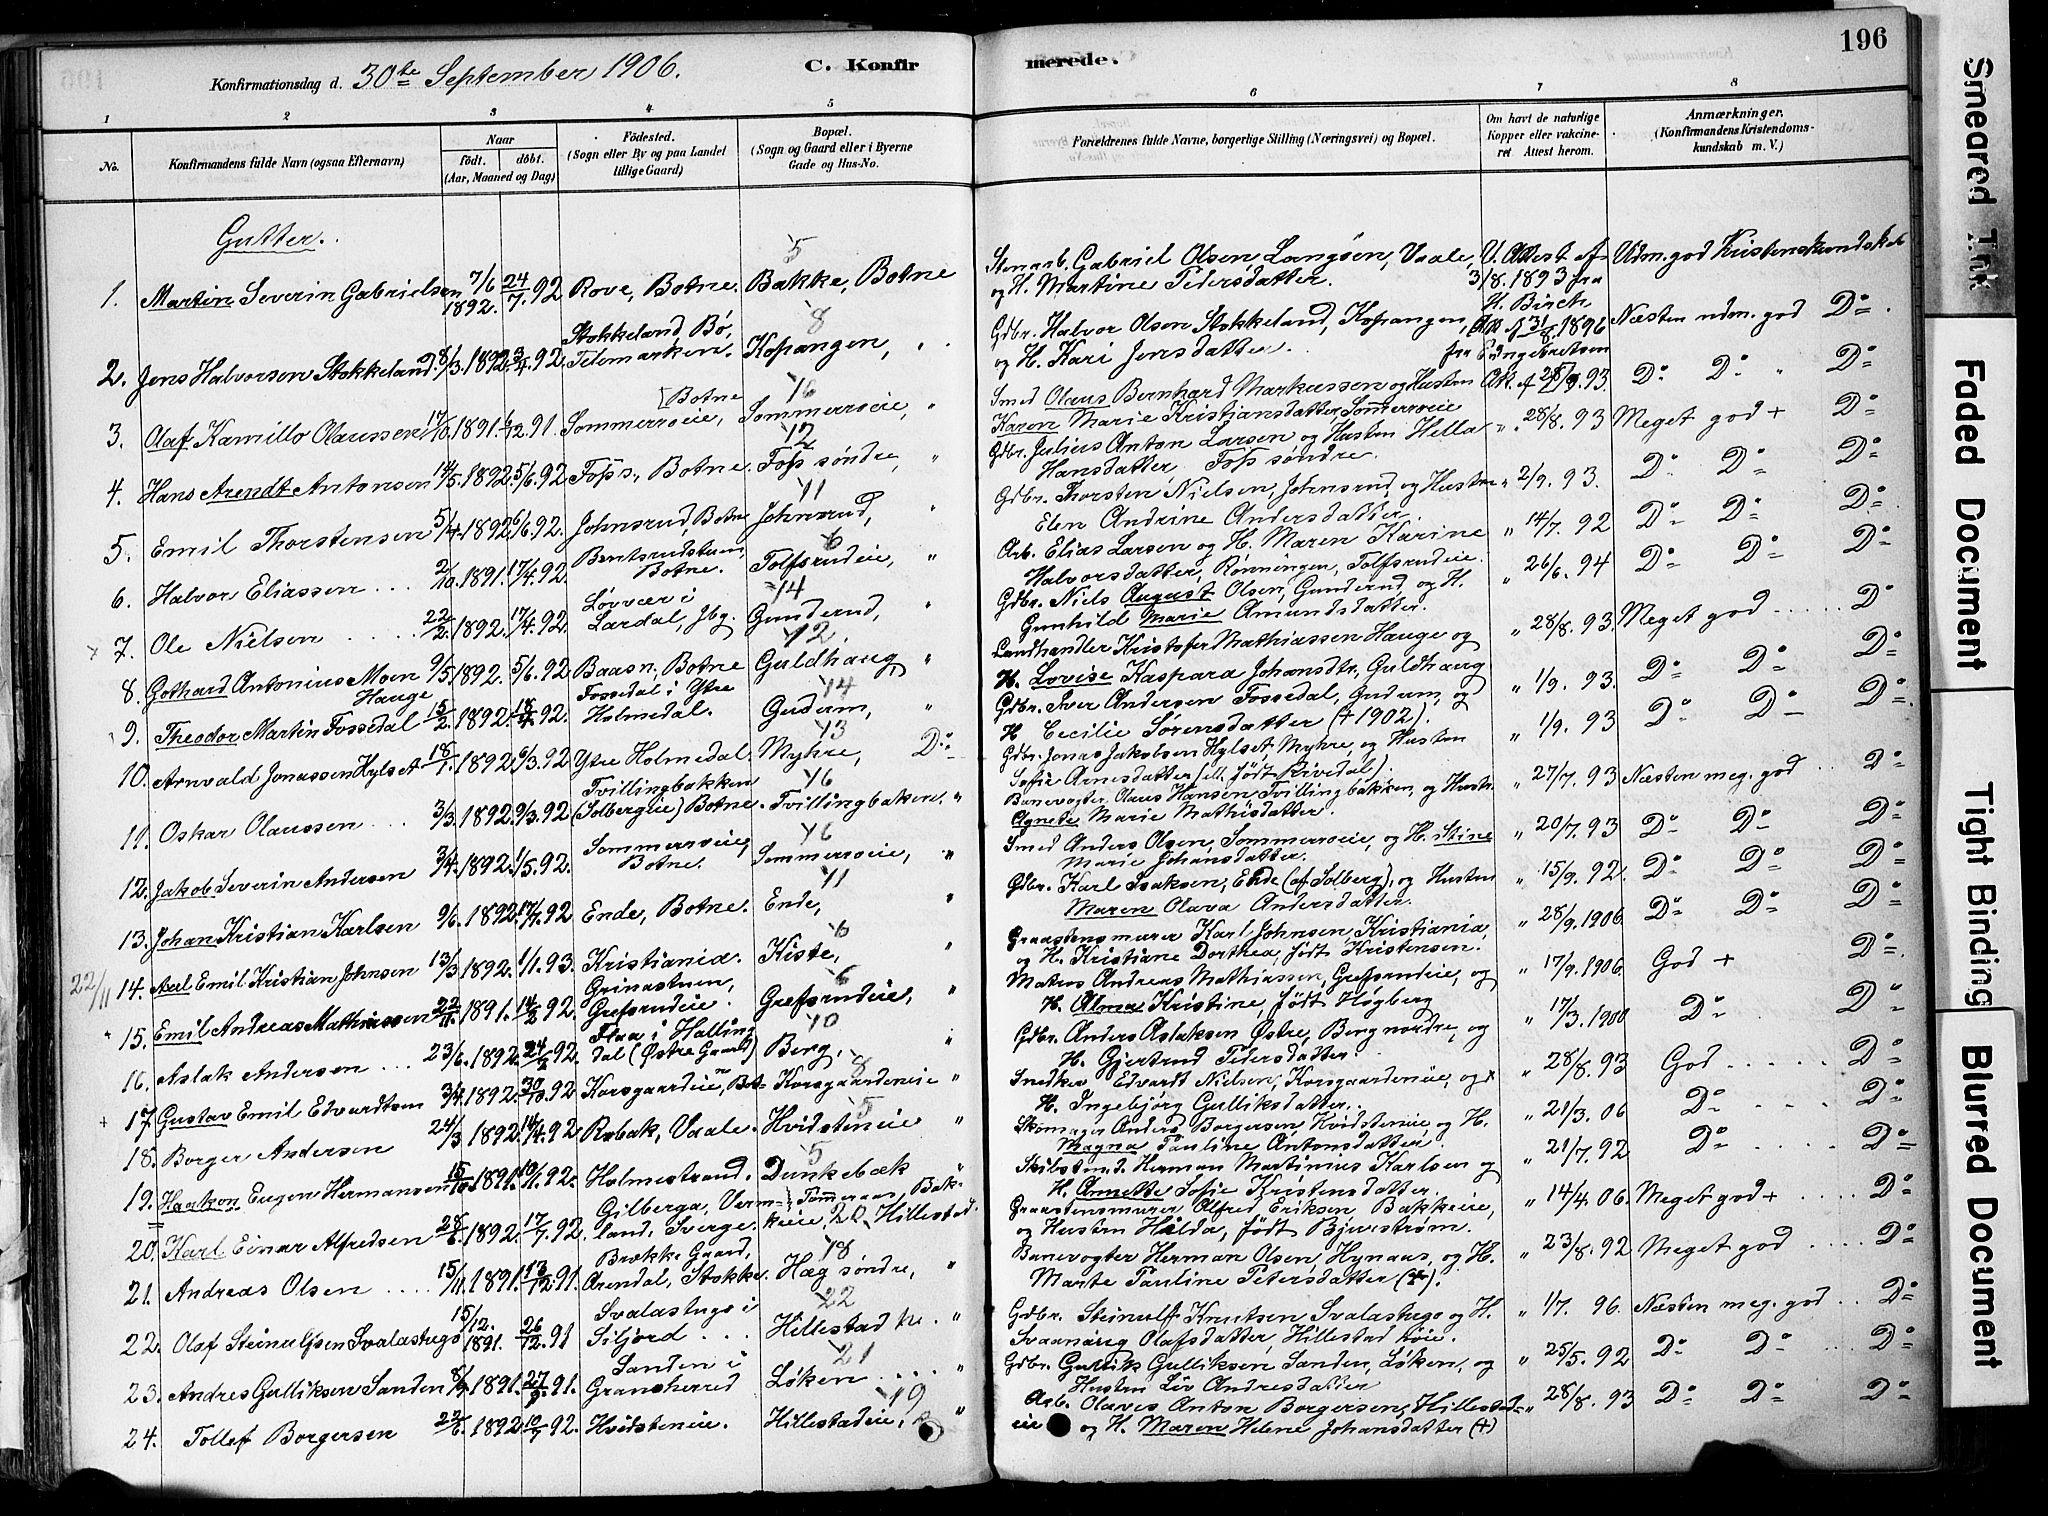 196
Konfirmationsdag d. 30te September 1906.
C. Konfir
merede.
1 2 3 4 5 6 7 8
No.
Konfirmandens fulde Navn (ogsaa Efternavn)
Naar
født. døbt.
(Aar, Maaned og Dag)
Fødested.
(Sogn eller By og paa Landet
tillige Gaard)
Bopæl.
(Sogn og Gaard eller i Byerne
Gade og Hus-No.
Forældrenes fulde Navne, borgerlige Stilling (Næringsvei) og Bopæl.
Om havt de naturlige
Kopper eller vakcine-
ret Attest herom.
Anmærkninger.
(Konfirmandens Kristendoms-
kundskab m. V.)
Gutter.
1. Martin Severin Gabrielsen 7/6 1892. 24/7. 92 Rove, Botne. Bakke, Botne
Stenarb. Gabriel Olsen Langøen, Vaale, V. Attest af Udm. god Kristenskundskab
og H. Martine Pedersdatter. 3/8. 1893 fra
H. Birch
2. Jens Halvorsen Stokkeland 8/3. 1892. 3/4. 92 Stokkeland, Bø, Telemarken. Kopangen, "
Gdbr. Halvor Olsen Stokkeland, Kopangen, 1896 Næsten udm. god Do
og H. Kari Jensdatter.
3. Olaf Kamillo Olaussen 17/10. 1891. 6/12. 91. Sommerroeie, Botne Sommerroeie, "
Smed Olaus Bernhard Markussen og Hustru 93. Do Do " Do
Karen Marie Kristiansdatter Sommerroeie
4. Hans Arendt Antonsen 14/5. 1892. 5/6. 92 Foss, Botne. Foss søndre, "
Gdbr. Julius Anton Larsen og Hustru Hella " 28/8. 93 Meget god + Do
Hansdatter, Foss søndre.
5. Emil Thorstensen 5/4. 1892. 6/6. 92. Johnsrud, Botne Johnsrud, "
Gdbr. Thorsten Nielsen, Johnsrud, og Hustru " 2/9. 93. Do Do Do
Elen Andrine Andersdatter.
6. Halvor Eliassen ... 2/10. 1891. 17/4. 92. Botne. Tolfsrudeie, "
Arb. Elias Larsen og H. Maren Karine " 14/7. 92 Do Do Do
Halvorsdatter, Rønningen, Tolfsrudeie.
7. Ole Nielsen ..... 22/2. 1892. 17/4. 92. Løvvær i Lardal, Jbg. Gunderud, "
Gdbr. Niels August Olsen, Gunderud, og H. " 26/6. 94 Do Do Do
Gunhild Marie Amundsdatter.
8. Gothard Antonius Moen Hauge 9/5. 1892. 5/6. 92 Baasn, Botne Guldhaug, "
Landhandler Kristofer Mathiassen Hauge og " 28/8. 93. Meget god ..... Do
H. Lovise Kaspara Johansdtr. Guldhaug
9. Theodor Martin Fossedal 15/2. 1892. 18/4. 92. Fossedal i Ytre Holmedal. Guderum, "
Gdbr. Iver Andersen Fossedal, Guderum, og " 1/9. 93. Do Do Do
H. Cecilie Sørensdatter (+ 1902).
10. Arnvald Jonassen Hylset 18/1. 1892. 6/3. 92 Ytre Holmedal. Myhre, Do
Gdbr. Jonas Jakobsen Hylset, Myhre, og Hustru " 1/9. 93 Do Do Do
Sofie Arnesdatter (ell. født Rivedal).
11. Oskar Olaussen ... 3/3. 1892. 9/3. 92 Tvillingbakken (Solbergeie) Botne. Tvillingbaken, "
Banevogter Olaus Hansen Tvillingbakken, og Hustr. " 27/7. 93 Næsten meg. god ... Do
Agnete Marie Mathisdatter.
12. Jakob Severin Andersen 3/4. 1892. 1/5. 92. Sommerroeie, Botne. Sommerroeie, "
Smed Anders Olsen, Sommerroeie, og H. Stine " 20/7. 93 Do Do Do
Marie Johansdatter.
13. Johan Kristian Karlsen 9/6. 1892. 17/7. 92 Ende, Botne. Ende, "
Gdbr. Karl Isaksen, Ende (af Solberg), og Hustru " 15/9. 92. Do Do Do
Maren Olava Andersdatter.
14. Axel Emil Kristian Johnsen 13/3. 1892. 1/1. 93. Kristiania. Kiste, "
Graastensmurer Karl Johnsen, Kristiania, " 28/9. 1906 Do Do Do
og H. Kristiane Dorthea, født Kristensen.
15. Emil Andreas Mathiassen 22/11. 1891. 14/2. 92. Grefsrudeie. Grefsrudeie, "
Matros Andreas Mathiassen, Grefsrudeie, og " 17/9. 1906. God + Do
H. Alma Kristine, født Høgberg
16. Aslak Andersen ... 23/6. 1892. 92. Flaa i Hallingdal (Østre Gaard) Berg, "
Gdbr. Anders Aslaksen Østre, Berg nordre, og " 17/3. 1900 Do . Do
H. Gjertrud Pedersdatter.
17. Gustav Emil Edvardtsen 3/4. 1892. 30/10. 92 Korsgaardeie, Bot- Korsgaardeneie "
Snedker Edvardt Nielsen, Korsgaardeneie, og " 28/8. 93 God .... Do
H. Ingebjørg Gulliksdatter.
18. Borger Andersen 24/3 1892. 14/4. 92 Robak, Vaale. Hvidsteneie "
Skomager Anders Borgersen Hvidsteneie og H. " 21/3. 06 Do .... Do
Magna Pauline Antonsdatter.
19. Haakon Eugen Hermansen 15/10. 1891. 10/1. 92. Holmestrand. Dunkebæk "
Herman Martinius Karlsen og " 21/7. 92 Do .... Do
H. Annette Sofie Kristensdatter.
20. Karl Einar Alfredsen 28/5. 1892. 17/7. 92. Gilberga, Vermland, Sverge. Hillestad.
Graastensmurer Alfred Eriksen Bakkeie, " 14/4. 06. Meget god + .... Do
og Hustru Hilda, født Bjurstrøm.
21. Andreas Olsen .... 15/11. 1891. 13/12. 91. Brække Gaard, Arendal, Stokke. Hæg søndre, "
Banevogter Herman Olsen, Hynaas, og H. " 23/8. 92 Meget god .... Do
Marte Pauline Petersdatter (+).
22. Olaf Steinulfsen Svalastugo 15/12. 1891. 26/12. 91 Svalastugo i Siljord ... Hillestad "
Gdbr. Steinulf Knutsen Svalastugo og H. " 1/7. 96. Næsten meg. god ... Do
Svanaug Olafsdatter, Hillestad
23. Andres Gulliksen Sanden 8/9. 1891. 27/9. 91. Sanden i Gransherred Løken .... "
Gdbr. Gullik Gulliksen Sanden, Løken, og " 25/5. 92 Do Do Do
Hustru Liv Andresdatter
24. Tollef Borgersen 22/6. 1892. 10/7. 92. Hvidsteneie. Hillestadeie, "
Arb. Olaves Anton Borgersen, Hillestad- " 28/8. 93 Do Do Do
eie og H. Maren Helene Johansdatter (+)
22/11
Smeared Ink
Faded Document
Tight Binding
Blurred Document